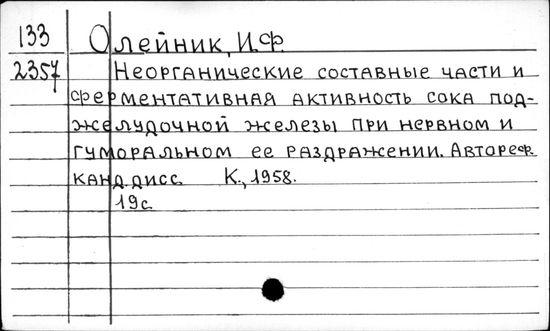 133 Олейник, И.Ф.
2357 Неорганические составные части и
ферментативная активность сока под-
желудочной железы при нервном и
гуморальном ее раздражении. Автореф.
канд. дисс. К., 1958.
19с.